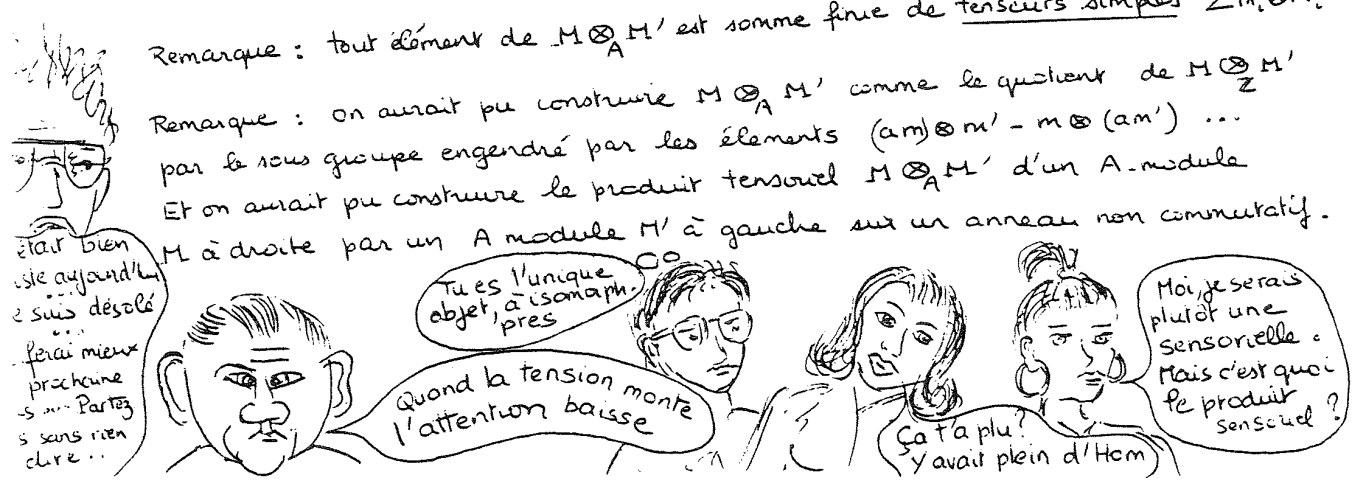 Remarque : tout élément de M ⊗_A M' est somme finie de tenseurs simples Σ m_i ⊗ m'_i
Remarque : on aurait pu construire M ⊗_A M' comme le quotient de M ⊗_Z M'
par le sous groupe engendré par les éléments (am) ⊗ m' - m ⊗ (am') ...
Et on aurait pu construire le produit tensoriel M ⊗_A M' d'un A-module
M à droite par un A module M' à gauche sur un anneau non commutatif.
était bien
aujourd'hui
...
suis désolé
...
ferai mieux
prochaine
... Partez
sans rien
dire ..
Quand la tension monte
l'attention baisse
Tu es l'unique
objet, à isomorph.
près
Ça t'a plu?
Y avait plein d'Hom
Moi, je serais
plutôt une
sensorielle.
Mais c'est quoi
le produit
sensoriel ?